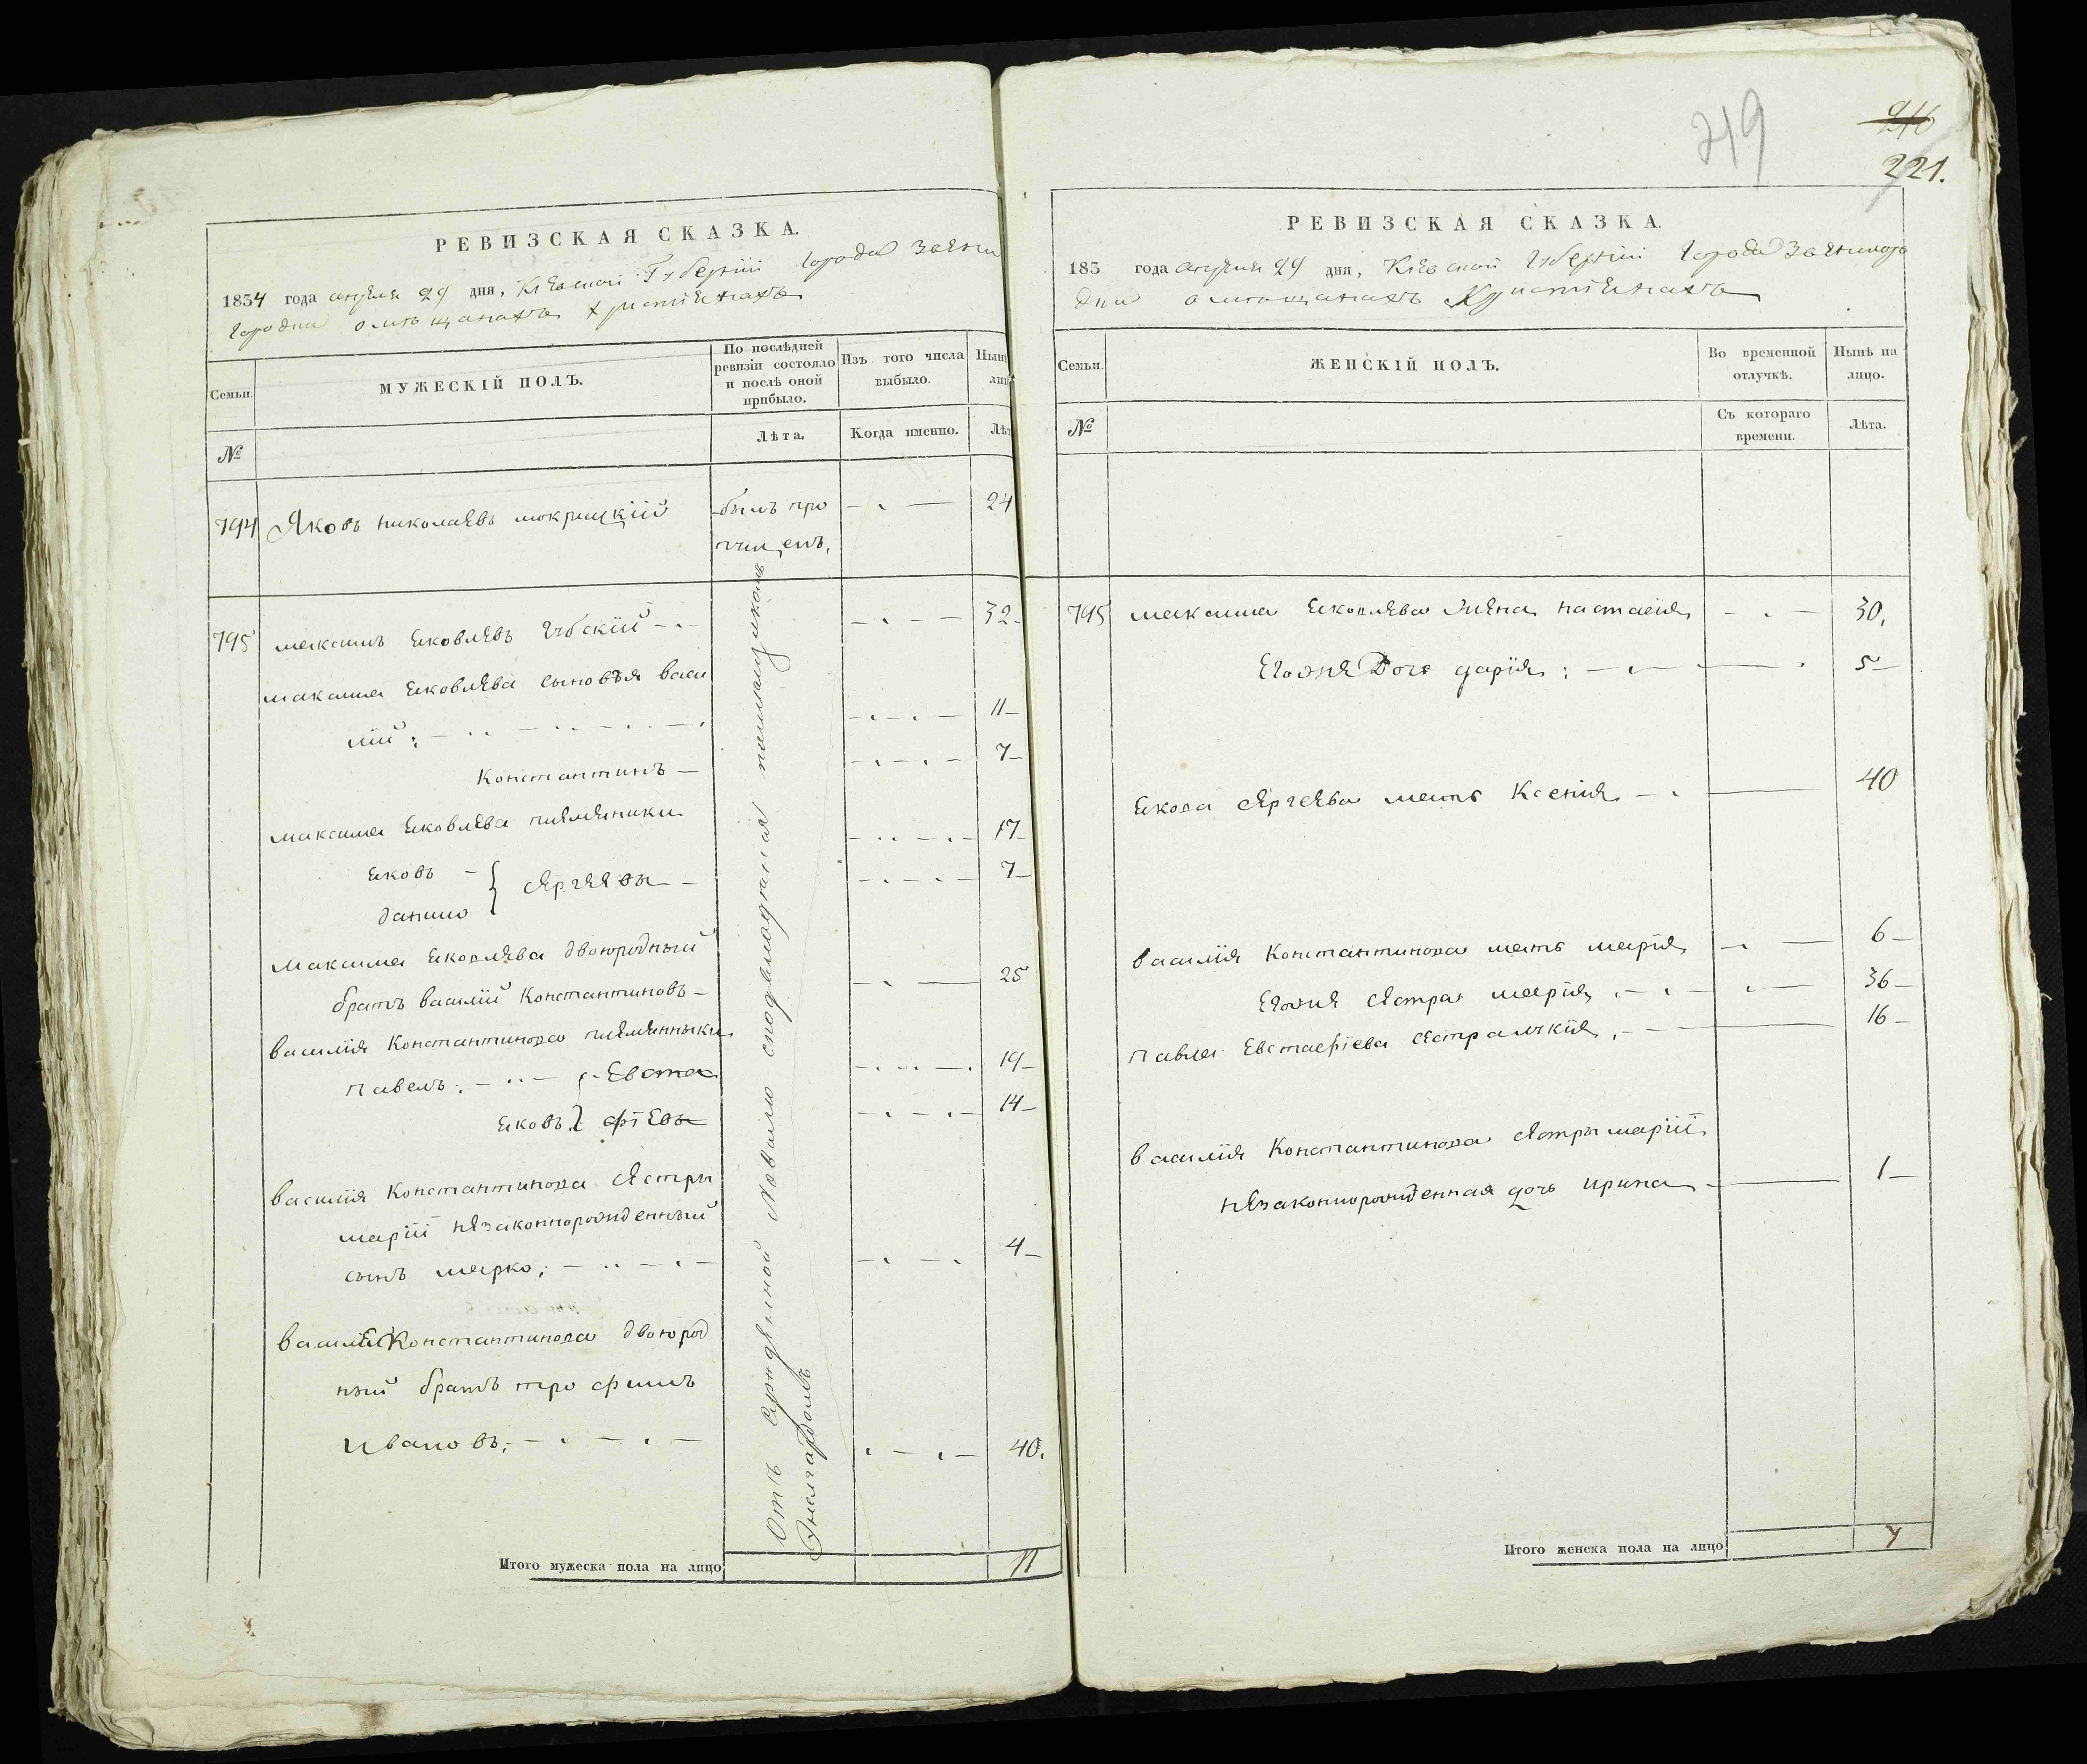 219
216
221.
РЕВИЗСКАЯ СКАЗКА.
1834 года апреля 29 дня, Киевской Губернiи города Звени
городки о мещанахъ христiенахъ
Семьи.
МУЖЕСКIЙ ПОЛЪ.
По послѣдней
ревизiи состояло
и послѣ оной
прибыло.
Изъ того числа
выбыло.
Нынѣ
лиц
№
Лѣта.
Когда именно.
Лѣт
794 Яковъ николаевъ мокрицкiй
былъ про
пущенъ,
24
795 максимъ яковлевъ Губскiй
32
максима яковлева сыновья васи
лiй:
11
Константинъ
7
максима яковлева племяники
яковъ
17
данило
7
сергеевы
Максима яковлева двоюродный
братъ василiй Константиновъ
25
василiя Константинова племянники
Павелъ:
19
Евста
яковъ
фiевы
14
василiя Константинова сестры
марiи незаконнорожденный
сынъ марко;
4
василiя Константинова двоюрод
ный братъ трофимъ
Ивановъ;
40.
Отъ
Итого мужеска пола на лицо
11
РЕВИЗСКАЯ СКАЗКА.
183 года апреля 29 дня, Киевской Губернiи города Звенигоро
дки о мещанахъ Христiенахъ
Семьи.
ЖЕНСКIЙ ПОЛЪ.
Во временной
отлучкѣ.
Нынѣ на
лицо.
№
Съ котораго
времени.
Лѣта.
795 максима яковлева жена настасiя
30,
Егожне Дочь дарiя:
5
якова сергеева мать Ксенiя
40
василiя Константинова мать марiя
6
Егожне сестра марiя
36
Павла Евстафiева сестра
16
василiя Константинова сестры марiи
незаконнорожденная дочь ирина
1
Итого женска пола на лицо
7